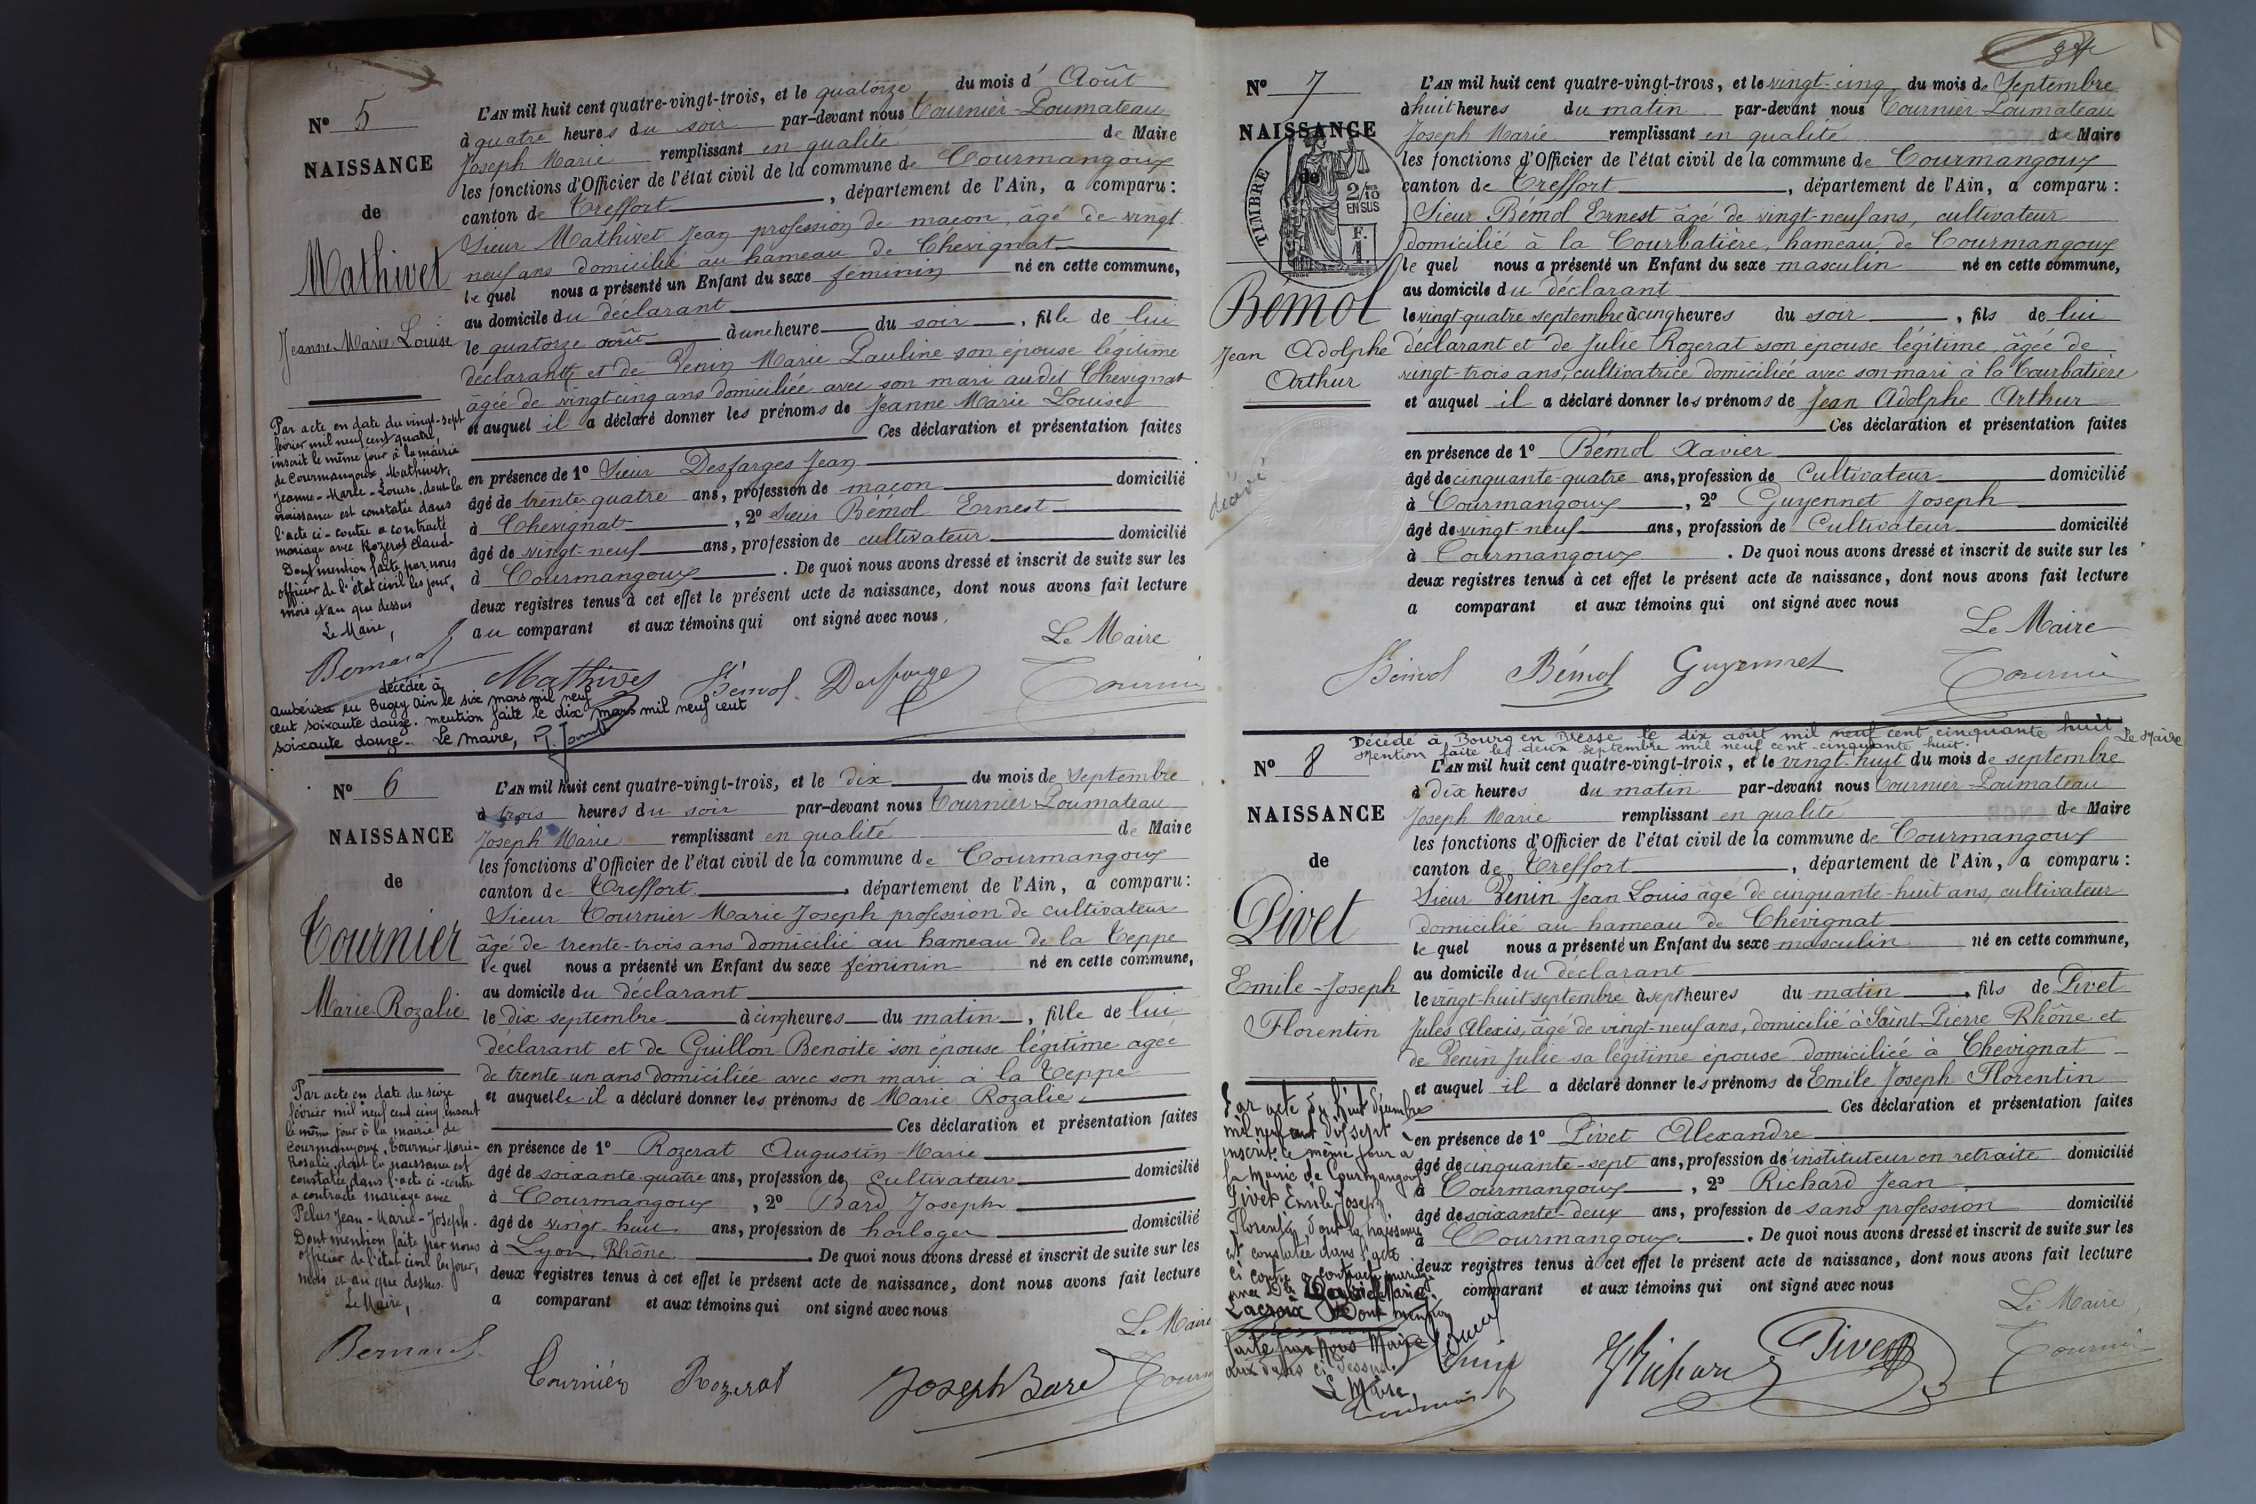 Nº 5
NAISSANCE
de
Mathivet
Jeanne Marie Louise
Par acte en date du vingt-sept
février mil neuf cent quatre,
inscrit le même jour à la mairie
de Courmangoux, Mathivet,
Jeanne-Marie-Louise, dont la
naissance est constatée dans
l'acte ci-contre a contracté
mariage avec Rozerat Claude
Dont mention faite par nous
officier de l'état civil les jour,
mois et an que dessus
Le Maire,
Bernard
L'AN mil huit cent quatre-vingt-trois, et le quatorze du mois d' Août
à quatre heures du soir par-devant nous Tournier-Poumateau
Joseph Marie remplissant en qualité de Maire
les fonctions d'Officier de l'état civil de la commune de Courmangoux
canton de Treffort, département de l'Ain, a comparu:
Sieur Mathivet Jean profession de maçon, âgé de vingt
neuf ans domicilié au hameau de Chevignat
le quel nous a présenté un Enfant du sexe féminin né en cette commune,
au domicile du déclarant
le quatorze août à une heure du soir, fille de lui
déclarant et de Penin Marie Pauline son épouse légitime
âgée de vingt cinq ans domiciliée avec son mari audit Chevignat
et auquel il a déclaré donner les prénoms de Jeanne Marie Louise
Ces déclaration et présentation faites
en présence de 1º Sieur Desfarges Jean
âgé de trente-quatre ans, profession de maçon domicilié
à Chevignat, 2º Sieur Bémol Ernest
âgé de vingt-neuf ans, profession de cultivateur domicilié
à Courmangoux. De quoi nous avons dressé et inscrit de suite sur les
deux registres tenus à cet effet le présent acte de naissance, dont nous avons fait lecture
au comparant et aux témoins qui ont signé avec nous.
Le Maire
Mathivet Bémol Desfarges Tournier
décédée à
Ambérieu en Bugey Ain le six mars mil neuf
cent soixante douze. mention faite le dix mars mil neuf cent
soixante douze. Le maire,
Nº 6
NAISSANCE
de
Tournier
Marie Rozalie
Par acte en date du seize
février mil neuf cent cinq inscrit
le même jour à la mairie de
Courmangoux, Tournier Marie-
Rosalie, dont la naissance est
constatée dans l'acte ci-contre
a contracté mariage avec
Pelus Jean-Marie-Joseph.
Dont mention faite par nous
officier de l'état civil les jour,
mois et an que dessus.
Le Maire,
Bernard
L'AN mil huit cent quatre-vingt-trois, et le dix du mois de septembre
à trois heures du soir par-devant nous Tournier Poumateau
Joseph Marie remplissant en qualité de Maire
les fonctions d'Officier de l'état civil de la commune de Courmangoux
canton de Treffort, département de l'Ain, a comparu:
Sieur Tournier Marie Joseph profession de cultivateur
âgé de trente-trois ans domicilié au hameau de la Teppe
le quel nous a présenté un Enfant du sexe féminin né en cette commune,
au domicile du déclarant
le dix septembre à cinq heures du matin, fille de lui
déclarant et de Guillon Benoite son épouse légitime agée
de trente-un ans domiciliée avec son mari à la Teppe
et auquelle il a déclaré donner les prénoms de Marie Rozalie.
Ces déclaration et présentation faites
en présence de 1º Rozerat Augustin Marie
âgé de soixante quatre ans, profession de Cultivateur domicilié
à Courmangoux, 2º Bard Joseph
âgé de vingt-huit ans, profession de horloger domicilié
à Lyon, Rhône. De quoi nous avons dressé et inscrit de suite sur les
deux registres tenus à cet effet le présent acte de naissance, dont nous avons fait lecture
a comparant et aux témoins qui ont signé avec nous
Le Maire
Tournier Rozerat Joseph Bard
Nº 7
NAISSANCE
de
TIMBRE
2/10
EN SUS
F.
1.
Bémol
Jean Adolphe
Arthur
L'AN mil huit cent quatre-vingt-trois, et le vingt-cinq du mois de Septembre
à huit heures du matin par-devant nous Tournier Poumateau
Joseph Marie remplissant en qualité de Maire
les fonctions d'Officier de l'état civil de la commune de Courmangoux
canton de Treffort, département de l'Ain, a comparu:
Sieur Bémol Ernest âgé de vingt-neuf ans, cultivateur
domicilié à la Courbatière, hameau de Courmangoux
le quel nous a présenté un Enfant du sexe masculin né en cette commune,
au domicile du déclarant
le vingt quatre septembre à cinq heures du soir, fils de lui
déclarant et de Julie Rozerat son épouse légitime, âgée de
vingt-trois ans, cultivatrice domiciliée avec son mari à la Courbatière
et auquel il a déclaré donner les prénoms de Jean Adolphe Arthur
Ces déclaration et présentation faites
en présence de 1º Bémol Xavier
âgé de cinquante-quatre ans, profession de Cultivateur domicilié
à Courmangoux, 2º Guyennet Joseph
âgé de vingt-neuf ans, profession de Cultivateur domicilié
à Courmangoux. De quoi nous avons dressé et inscrit de suite sur les
deux registres tenus à cet effet le présent acte de naissance, dont nous avons fait lecture
a comparant et aux témoins qui ont signé avec nous
Le Maire
Bémol Bémol Guyennet Tournier
Décédé à Bourg en Bresse le dix août mil neuf cent cinquante huit
Mention faite le deux septembre mil neuf cent cinquante huit. Le Maire
Nº 8
NAISSANCE
de
Pivet
Emile-Joseph
Florentin
Par acte du huit décembre
mil neuf cent dix sept
inscrit le même jour à
la mairie de Courmangoux
Pivet Emile Joseph
Florentin, dont la naissance
est constatée dans l'acte
ci contre a contracté mariage
avec
Lacroix Dont mention
faite par nous Maire
aux dates ci dessus.
Le Maire,
L'AN mil huit cent quatre-vingt-trois, et le vingt-huit du mois de septembre
à dix heures du matin par-devant nous Tournier-Poumateau
Joseph Marie remplissant en qualité de Maire
les fonctions d'Officier de l'état civil de la commune de Courmangoux
canton de Treffort, département de l'Ain, a comparu:
Sieur Penin Jean Louis âgé de cinquante-huit ans, cultivateur
domicilié au hameau de Chevignat
le quel nous a présenté un Enfant du sexe masculin né en cette commune,
au domicile du déclarant
le vingt-huit septembre à sept heures du matin, fils de Pivet
Jules Alexis, âgé de vingt-neuf ans, domicilié à Saint Pierre Rhône et
de Penin Julie sa légitime épouse domiciliée à Chevignat
et auquel il a déclaré donner les prénoms de Emile Joseph Florentin
Ces déclaration et présentation faites
en présence de 1º Pivet Alexandre
âgé de cinquante-sept ans, profession d'instituteur en retraite domicilié
à Courmangoux, 2º Richard Jean
âgé de soixante-deux ans, profession de sans profession domicilié
à Courmangoux. De quoi nous avons dressé et inscrit de suite sur les
deux registres tenus à cet effet le présent acte de naissance, dont nous avons fait lecture
comparant et aux témoins qui ont signé avec nous
Le Maire,
Penin Richard Pivet Tournier